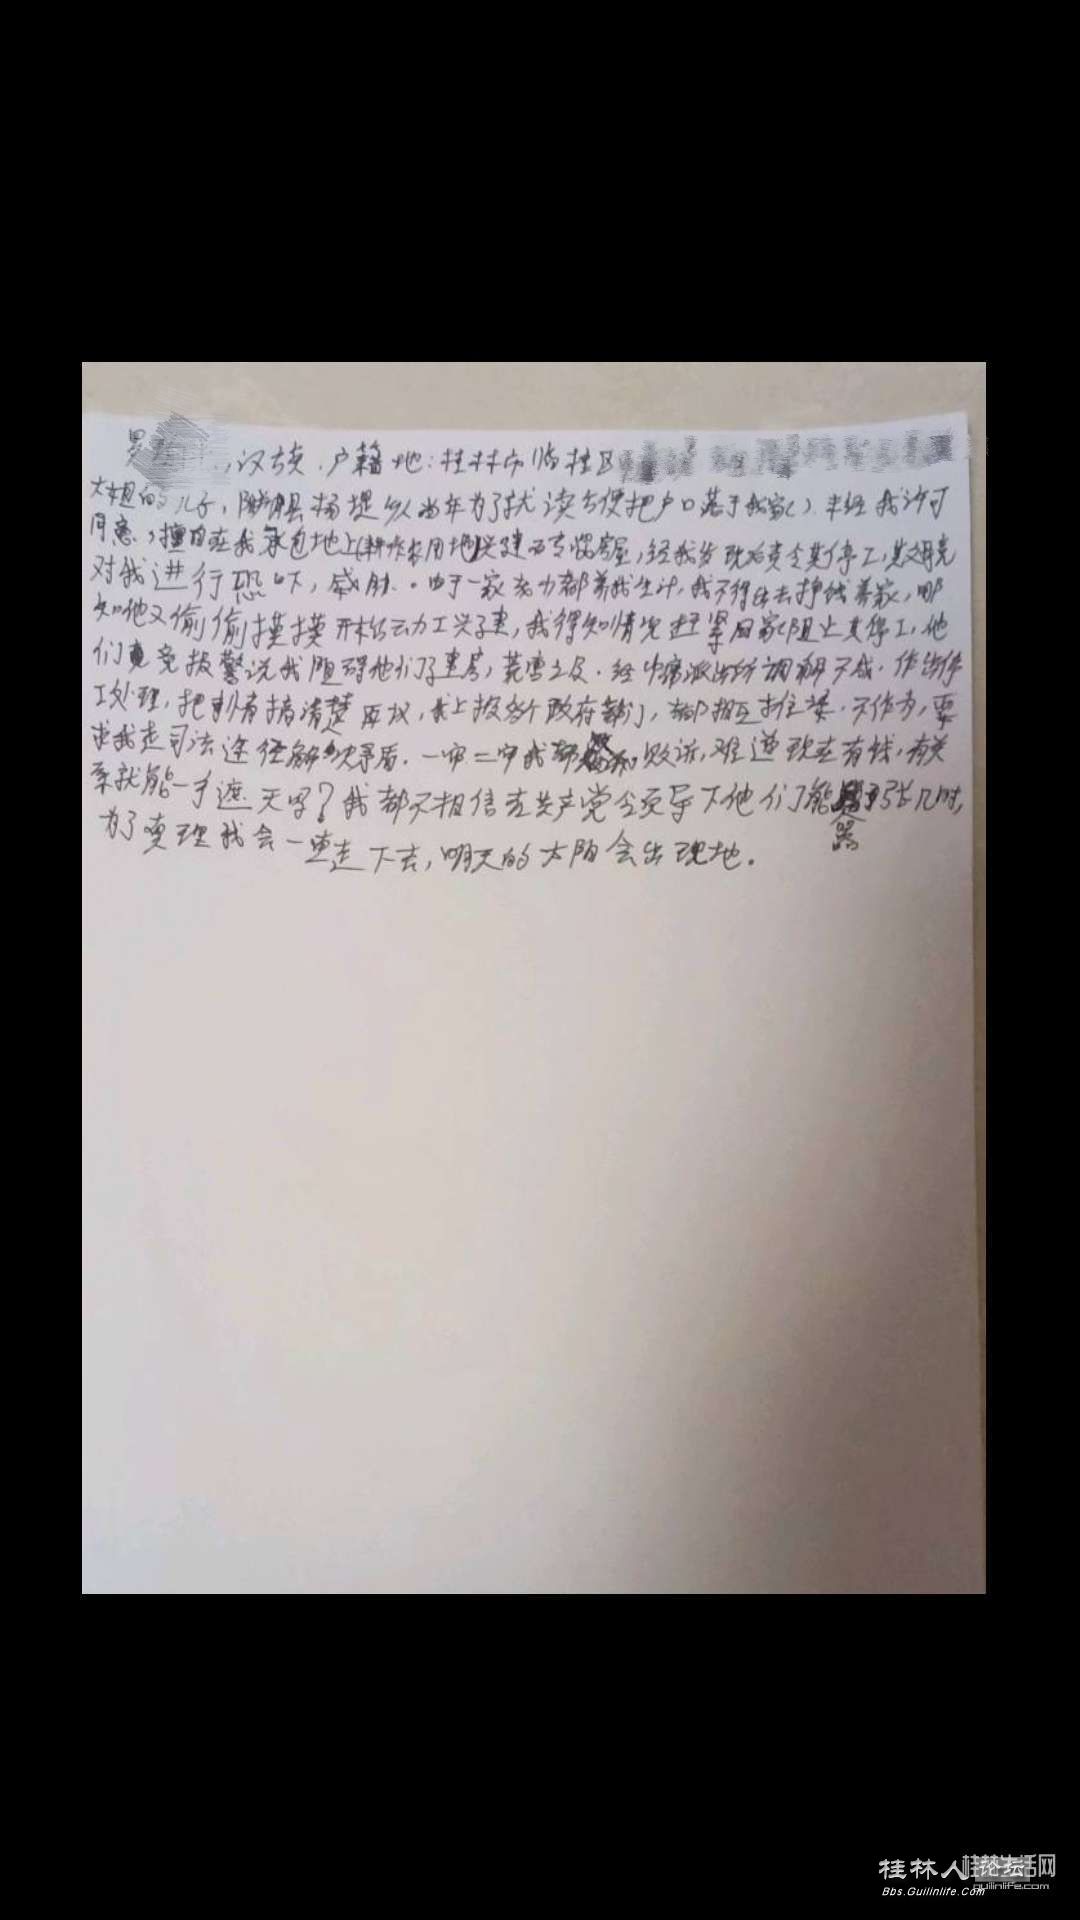 ,汉族.户籍地:桂林市临桂区
大姐的儿子,阳朔县杨堤乡人当年为了就读方便把户口落于我家).未经我许可
同意,擅自在我承包地上(耕作农用地)兴建砖房屋,经我发现后责令其停工,其父母竟
对我进行恐吓,威胁.由于一家老力都靠我生计,我不得出去挣钱养家,哪
知他又偷偷摸摸开始动力工兴建,我得知情况赶紧回家阻止其停工,他
们竟竟报警说我阻碍他们了建房,荒唐之及.经派出所调解不成,作出停
工处理,把事情搞清楚再议,我上报各个政府部门,都相互推诿.不作为,要
求我走司法途径解决矛盾.一审二审我都败诉,难道现在有钱,有关
系就能一手遮天吗?我都不相信在共产党领导下他们能嚣张几时,
为了真理我会一直走下去,明天的太阳会出现地.
桂林人论坛
Bbs.Guilinlife.com
桂林生活网
guilinlife.com